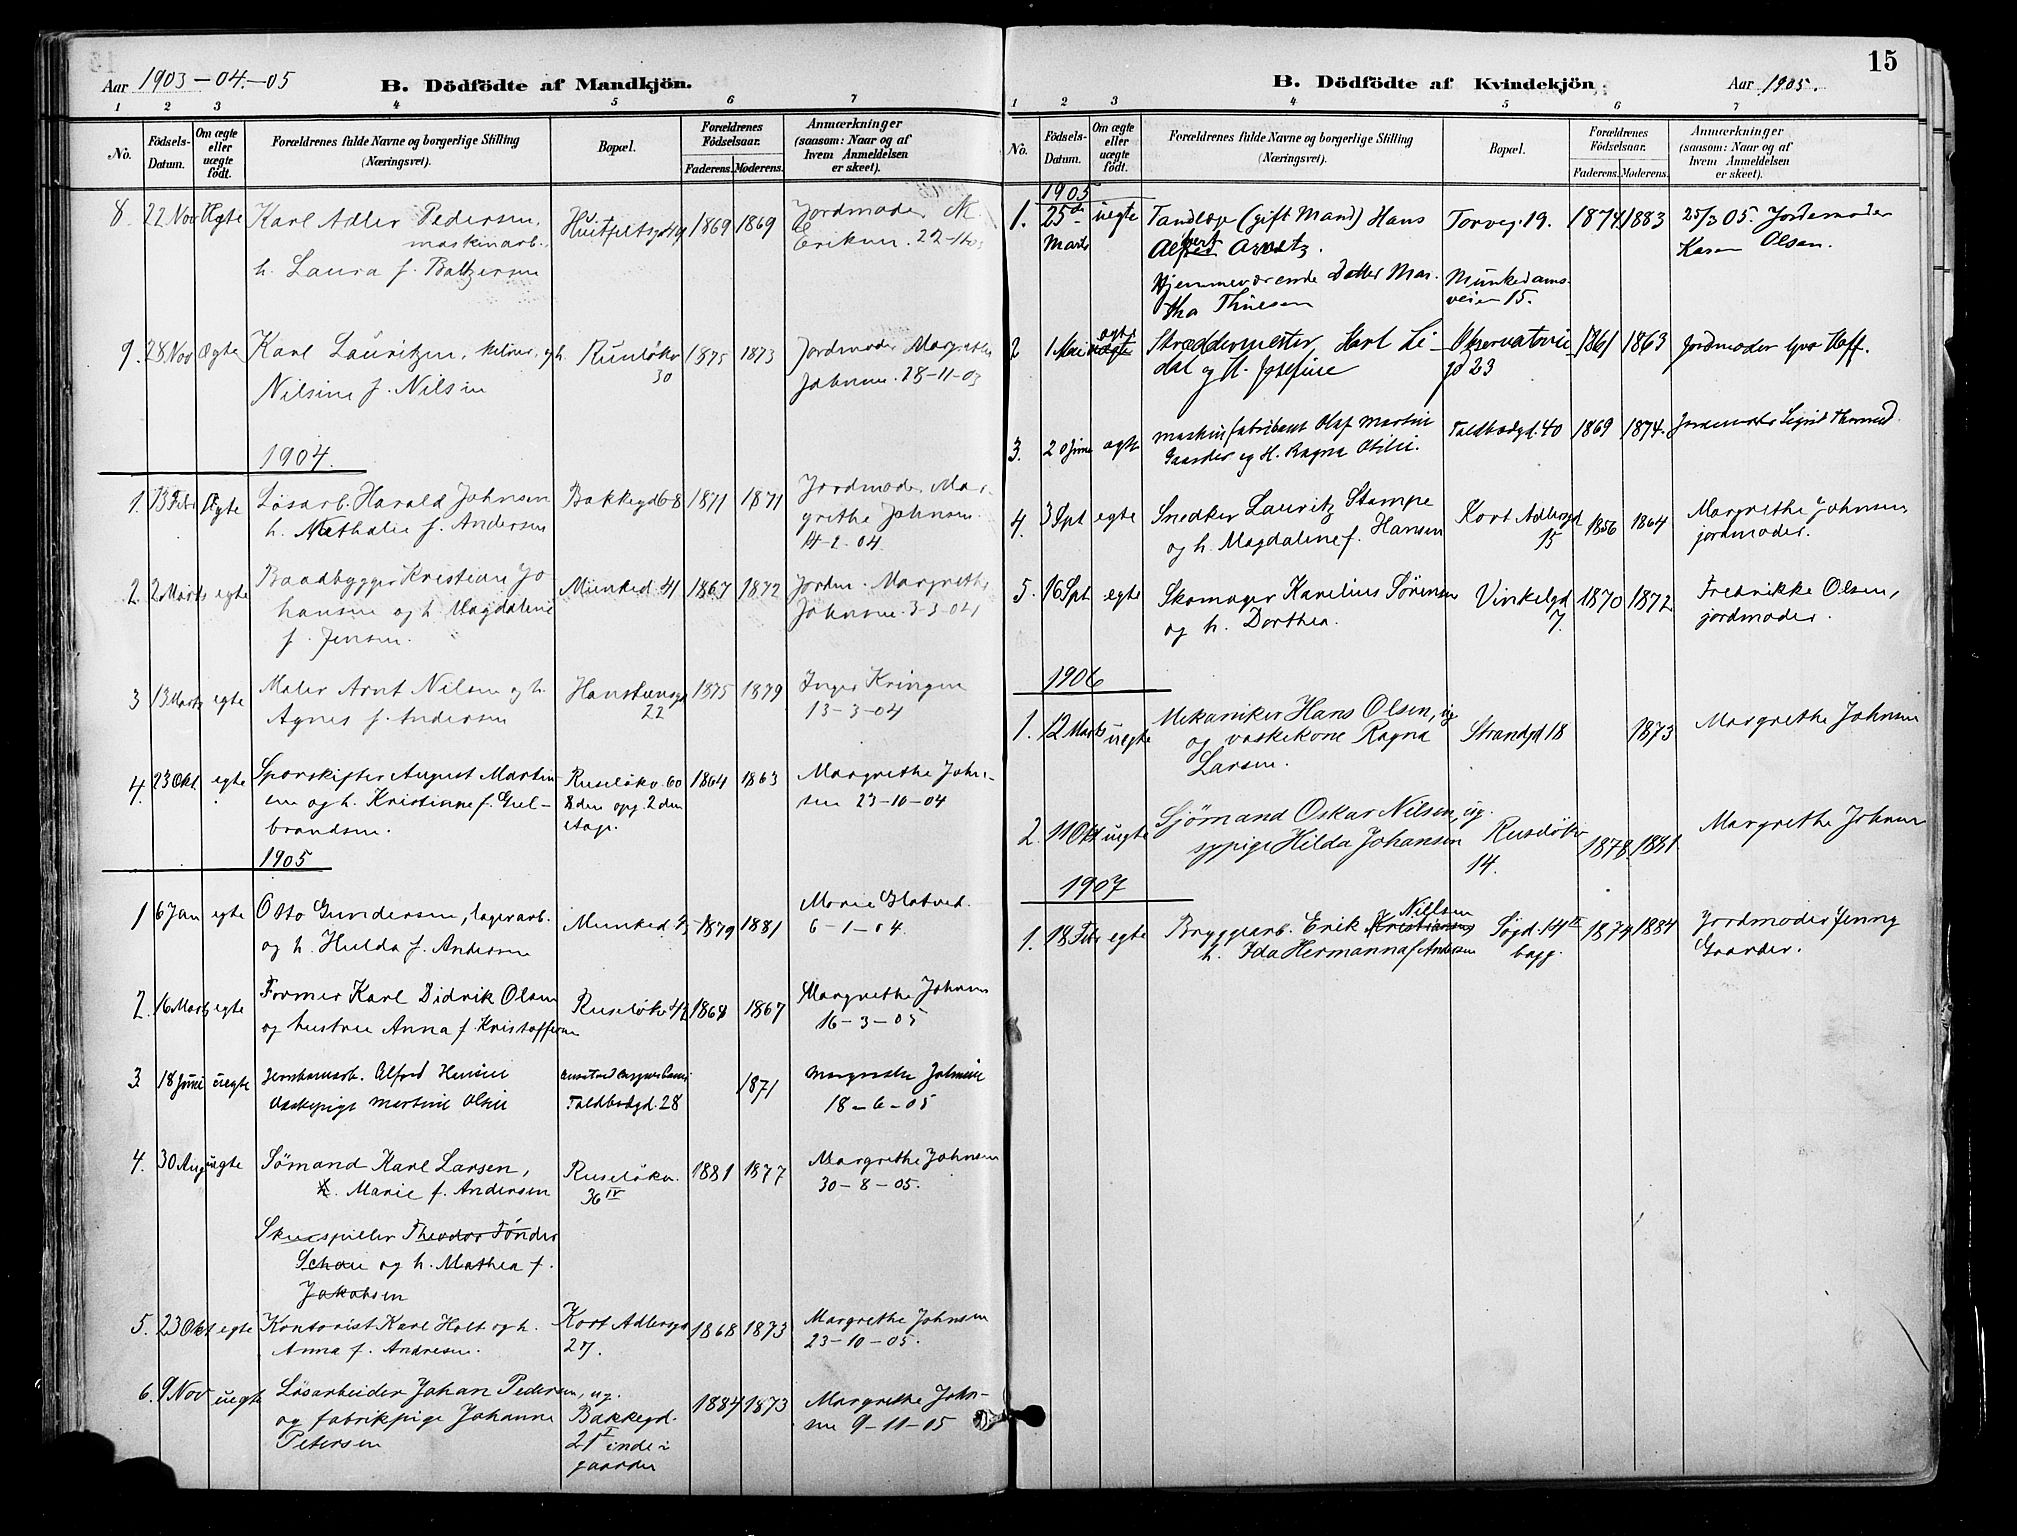 Aar 1903-04.-05
B. Dödfödte af Mandkjön.
1 2 3 4 5 6 7
No.
Födsels-
Datum.
Om ægte
eller
uægte
födt.
Forældrenes fulde Navne og borgerlige Stilling
(Næringsvei).
Bopæl.
Forældrenes
Födselsaar.
Faderens. Moderens.
Anmærkninger
(saasom: Naar og af
hvem Anmeldelsen
er skeet).
8 22 Nov Ægte Karl Adler Pedersen, 1869 1869 Jordmoder
maskinarb.
h. Laura f. Baltzersen
9. 28 Nov Ægte Karl Lauritzen, og h. 1875 1873 Jordmoder Margrethe
30 Johnsen. 28-11-03
Nilsine f. Nilsen
1904.
1. 13 Febr Ægte Løsarb. Harald Johnsen Bakkegd 68 1871 1871 Jordmoder Mar-
h. Nathalie f. Andersen grethe Johnsen.
14-2.04.
2. 2 Marts egte Baadbygger Kristian Jo Munked 41 1867 1872 Jordm. Margrethe
hansen og h. Magdalene Johnsen 3-3-04
f. Jensen.
3 13 Marts egte Maler Arnt Nilsen og h. 1875 1879 Inger Kringen
Agnes f. Andersen 22 13-3-04
4. 23 Okt. egte Sporskifter August Martin Ruseløkv. 60 1864 1863 Margrethe John-
sen og h. Kristinne f. Gul- 2 den sen 23-10-04
brandsen. etage.
1905
1 6 Jan egte Otto Gundersen, lagerarb. Munked 1879 1881 Marie
og h. Hulda f. Andersen 6-1-04.
2. 16 Marts egte Former Karl Didrik Olsen Ruseløkv 42 1868 1867 Margrethe Johnsen
og hustru Anna f. Kristoffersen 16-3-05
3. 18 Juni uegte Jernbanearb. Alfred Hansen 1871 Margrethe Johnsen
Vaskepige Martine Olsen Toldbodgd. 28 18-6-05
4. 30 Aug uegte Sømand Karl Larsen, Ruseløkv. 1881 1877 Margrethe Johnsen
h. Marie f. Andersen 36 IV 30-8-05.
Skuespiller Theodor Tønder
Schou og h. Mathea f.
Jakobsen
5. 23 Okt egte Kontorist Karl Holt og h. Kort Adlersgd 1868 1873 Margrethe Johnsen
Anna f. Andresen. 27. 23-10-05.
6. 9 Nov uegte Løsarbeider Johan Pedersen, ug. 1884 1873 Margrethe John-
og fabrikpige Johanne Bakkegd. sen 9-11-05
Petersen 21 I inde i
gaarden
15
B. Dödfödte af Kvindekjön.
Aar 1905.
1 2 3 4 5 6 7
No.
Födsels-
Datum.
Om ægte
eller
uægte
födt.
Forældrenes fulde Navne og borgerlige Stilling
(Næringsvei).
Bopæl.
Forældrenes
Födselsaar.
Faderens. Moderens.
Anmærkninger
(saasom: Naar og af
hvem Anmeldelsen
er skeet).
1905
1. 25de uegte Tandlæge (gift Mand) Hans Torvej. 19. 1874 1883 25/3 05. Jordemoder
Marts Karen Olsen.
Hjemmeværende Datter Mar- Munkedams-
tha Thuesen veien 15.
2 1 Mai ægte uægte Skræddermester 1861 1863 Jordmoder
og H. Josefine gd 23
3. 20 Juni ægte Maskinfabrikant Olaf Martin Toldbodgd. 40 1869 1874. Jordmoder Sigrid
Gaarder og H. Ragna Otilie.
4. 3 Spt egte Snedker Lauritz Stampe Kort Adlersgd 1856 1864 Margrethe Johnsen,
og h. Magdalene f. Hansen 15 jordmoder.
5. 16 Spt egte Skomager Karelius Sørensen Vinkelgd 1870 1872 Fredrikke Olsen,
og h. Dorthea. 7. jordmoder.
1906
1. 12 Marts uegte Mekaniker Hans Olsen, ug Strandgd 18 1873 Margrethe Johnsen
og vaskekone Ragna
Larsen.
2. 11 Okt uegte Sjømand Oskar Nilsen, ug. Ruseløkv 1878 1881 Margrethe Johnsen
sypige Hilda Johansen 14.
1907
Nillsen
1. 18 Feb egte Bryggearb. Erik Kristiansen Søgd. 14 II 1874 1884 Jordmoder Jenny
h. Ida Hermanna f Andersen bagg. Gaarder.